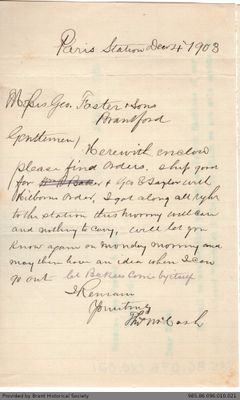 Paris Station Dec 4th 1903
Messrs. Geo. Foster & Sons
Brantford
Gentlemen)
Herewith enclose
please find Orders. Ship goods
for & Geo E Taylor with
order, I got along all right
to the station this morning
and nothing to carry, will let you
know again on Monday morning and
may then have an idea when I can
go out let Baker come by itself
I Remain
Yours truly
Thos McCosh
Provided by Brant Historical Society
985.86.096.010.021